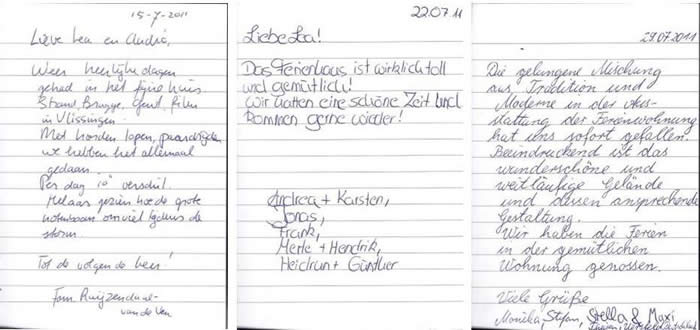 15-7-2011
Lieve Lea en André,
Weer heerlijke dagen
gehad in het fijne huis
Strand, Brugge, Gent, film
in Vlissingen.
Met honden lopen, paardrijden
we hebben het allemaal
gedaan.
Per dag 10° verschil.
Helaas gezien hoe de grote
notenboom omviel tijdens de
storm.
Tot de volgende keer!
Fam Ruijzendaal-
van de Ven
22.07.11
Liebe Lea!
Das Ferienhaus ist wirklich toll
und gemütlich!
Wir hatten eine schöne Zeit und
kommen gerne wieder!
Andrea + Karsten,
Jonas,
Frank,
Merle + Hendrik,
Heidrun + Günther
29.07.2011
Die gelungene Mischung
aus Tradition und
Moderne in der Aus-
stattung der Ferienwohnung
hat uns sofort gefallen.
Beeindruckend ist das
wunderschöne und
weitläufige Gelände
und dessen ansprechende
Gestaltung.
Wir haben die Ferien
in der gemütlichen
Wohnung genossen.
Viele Grüße
Monika, Stefan, Stella & Maxi